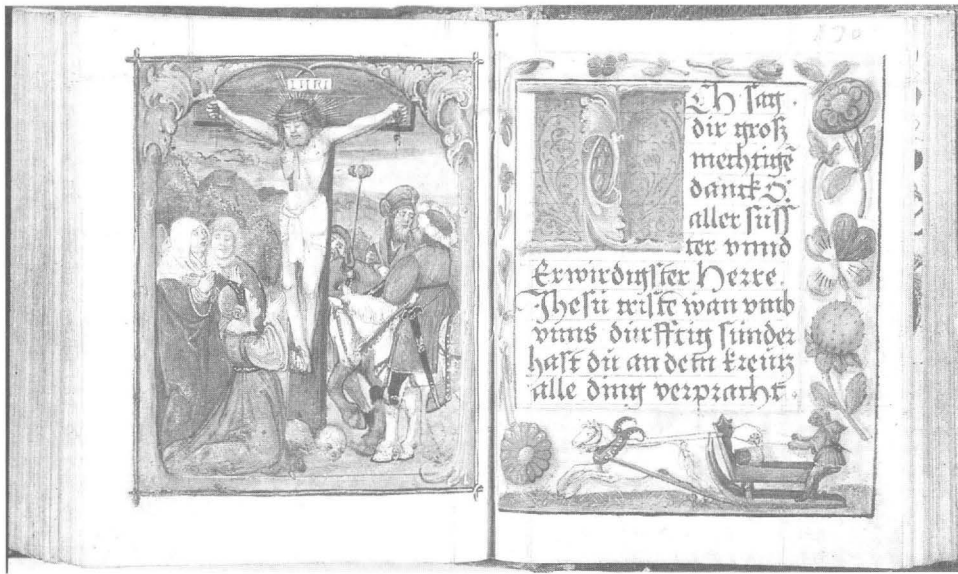 INRI
Ich sag
dir groß
mechtigē
danck O
aller süss
ter vnnd
Erwirdigster Herre
Jhesu criste wan vmb
vnns dürfftig sünder
hast dü an dem kreütz
alle ding verpracht